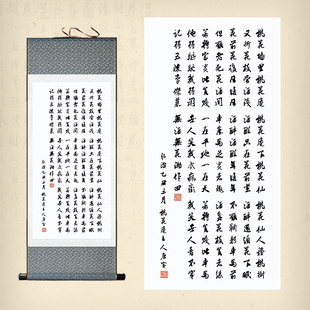 桃花塢里桃花庵 桃花庵下桃花仙 桃花仙人種桃樹
又折花枝當酒錢 酒醒只在花前坐 酒醉還須花下眠
花前花後日復日 酒醉酒醒年復年 不願鞠躬車馬前
但願老死花酒間 車塵馬足貴者趣 酒盞花枝貧者緣
若將富貴比貧賤 一在平地一在天 若將貧賤比車馬
他得驅馳我得閒 世人笑我忒風顛 我笑世人看不穿
記得五陵豪傑墓 無酒無花鋤作田
弘治乙丑三月桃花庵主人唐寅